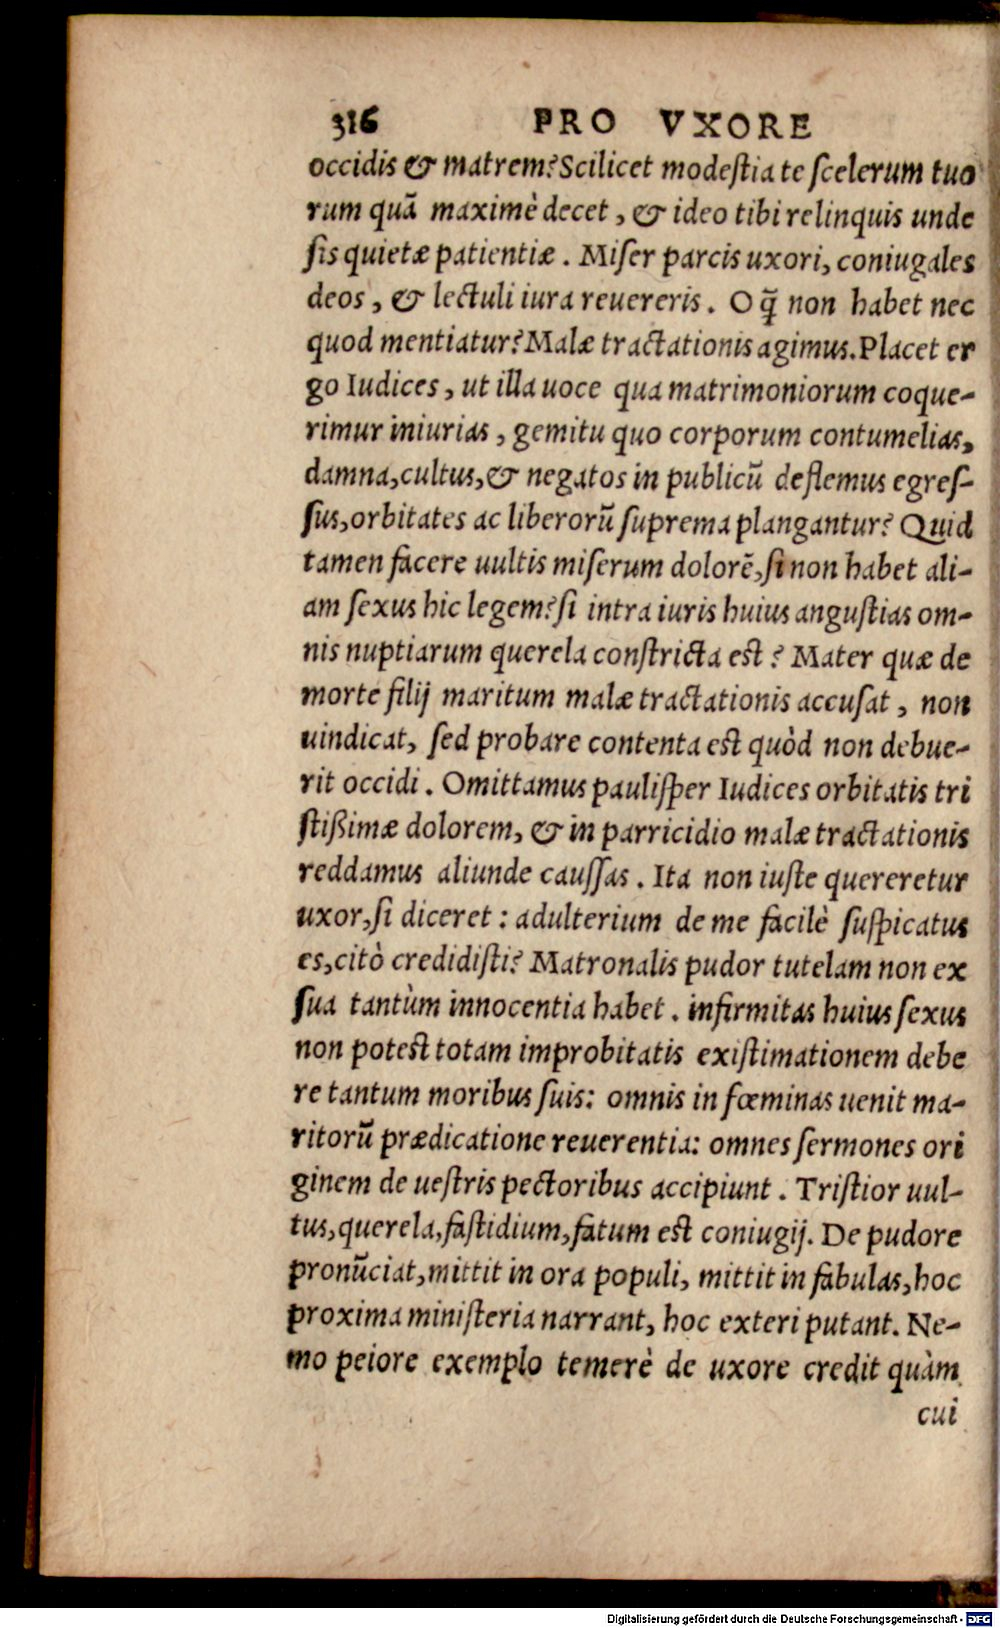 316 PRO VXORE
occidis & matrem? Scilicet modestia te scelerum tuo
rum quā maximè decet, & ideo tibi relinquis unde
sis quietæ patientiæ. Miser parcis uxori, coniugales
deos, & lectuli iura reuereris. O q̄ non habet nec
quod mentiatur? Malæ tractationis agimus. Placet er
go Iudices, ut illa uoce qua matrimoniorum coque-
rimur iniurias, gemitu quo corporum contumelias,
damna, cultus, & negatos in publicū deflemus egres-
sus, orbitates ac liberorū suprema plangantur? Quid
tamen facere uultis miserum dolorē, si non habet ali-
am sexus hic legem? si intra iuris huius angustias om-
nis nuptiarum querela constricta est? Mater quæ de
morte filij maritum malæ tractationis accusat, non
uindicat, sed probare contenta est quòd non debue-
rit occidi. Omittamus paulisper Iudices orbitatis tri
stißimæ dolorem, & in parricidio malæ tractationis
reddamus aliunde caussas. Ita non iuste quereretur
uxor, si diceret: adulterium de me facilè suspicatus
es, citò credidisti? Matronalis pudor tutelam non ex
sua tantùm innocentia habet. infirmitas huius sexus
non potest totam improbitatis existimationem debe
re tantum moribus suis: omnis in fœminas uenit ma-
ritorū prædicatione reuerentia: omnes sermones ori
ginem de uestris pectoribus accipiunt. Tristior uul-
tus, querela, fastidium, fatum est coniugij. De pudore
pronūciat, mittit in ora populi, mittit in fabulas, hoc
proxima ministeria narrant, hoc exteri putant. Ne-
mo peiore exemplo temerè de uxore credit quàm
cui
Digitalisierung gefördert durch die Deutsche Forschungsgemeinschaft - DFG